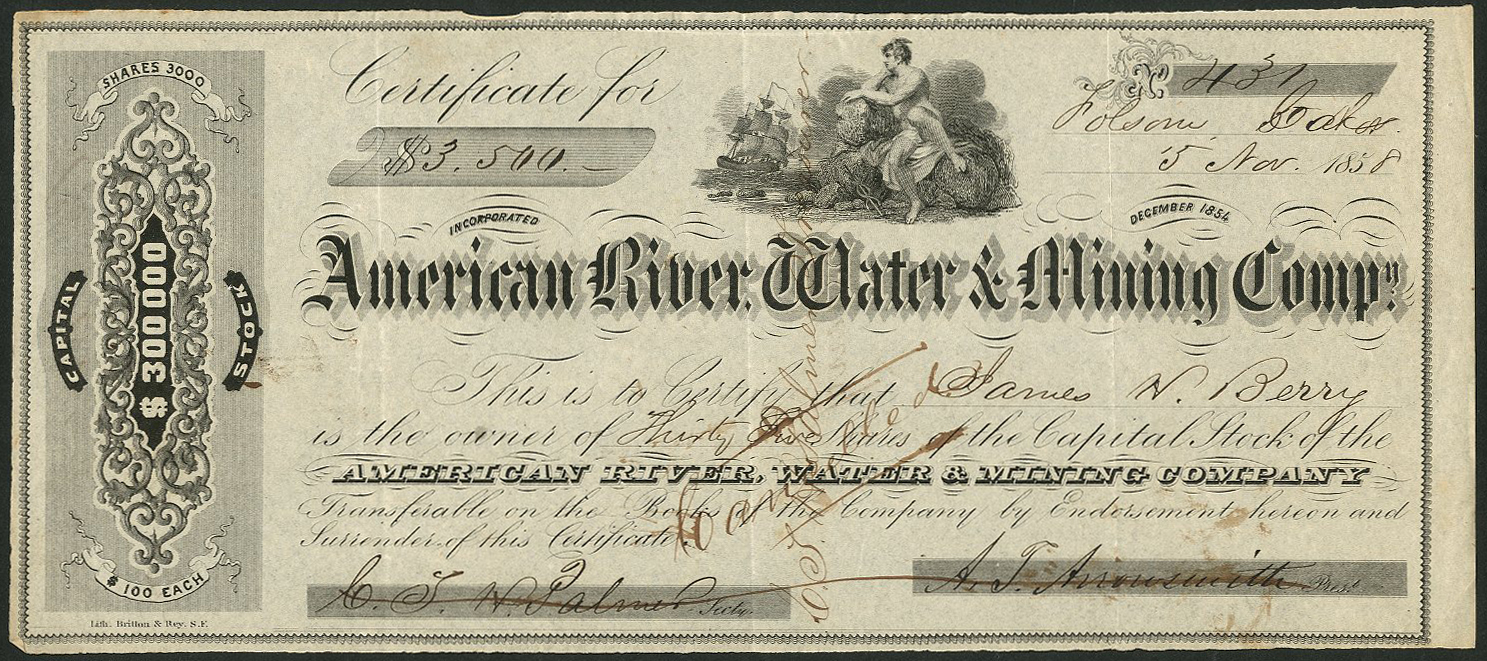 SHARES 3000
CAPITAL
$ 300000
STOCK
$ 100 EACH
Lith. Britton & Rey. S.F.
Certificate for
$3.500.-
No. 431
Folsom,
5 Nov. 1858
INCORPORATED
DECEMBER 1854
American River, Water & Mining Compy.
This is to Certify that James W. Berry
is the owner of Thirty Five Shares of the Capital Stock of the
AMERICAN RIVER, WATER & MINING COMPANY
Transferable on the Books of the Company by Endorsement hereon and
Surrender of this Certificate.
C. T. H. Palmer Secty.
A. T. Arrowsmith Prest.
Cancelled